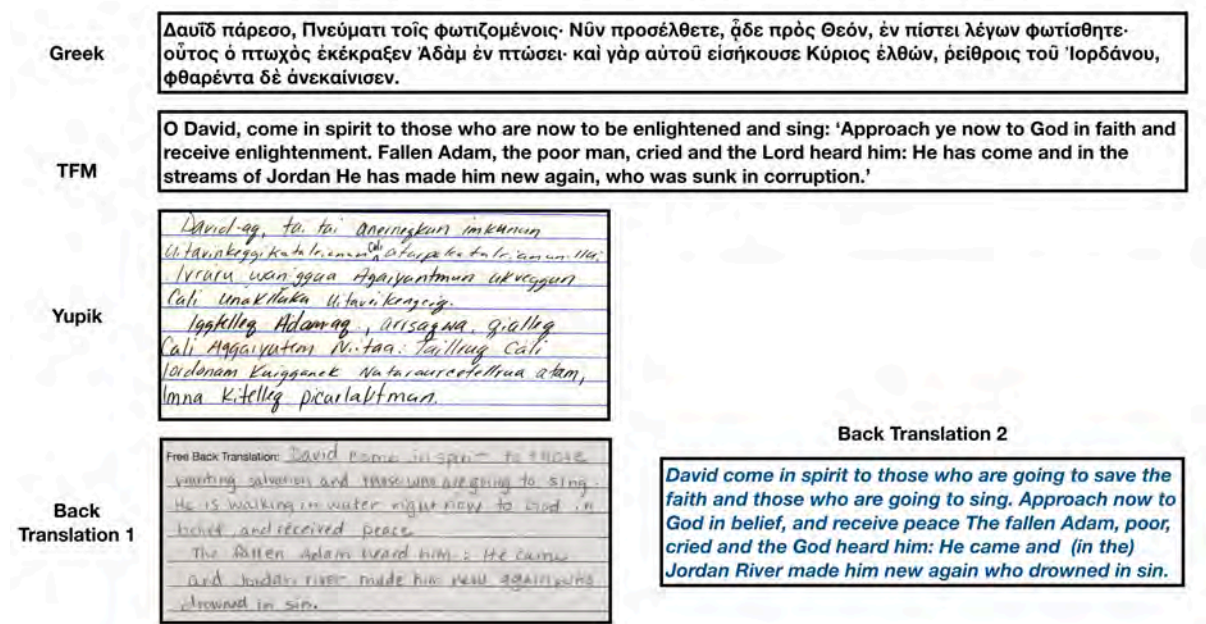 Greek
Δαυῒδ πάρεσο, Πνεύματι τοῖς φωτιζομένοις· Νῦν προσέλθετε, ᾆδε πρὸς Θεόν, ἐν πίστει λέγων φωτίσθητε·
οὗτος ὁ πτωχὸς ἐκέκραξεν Ἀδὰμ ἐν πτώσει· καὶ γὰρ αὐτοῦ εἰσήκουσε Κύριος ἐλθών, ῥείθροις τοῦ Ἰορδάνου,
φθαρέντα δὲ ἀνεκαίνισεν.
TFM
O David, come in spirit to those who are now to be enlightened and sing: ‘Approach ye now to God in faith and
receive enlightenment. Fallen Adam, the poor man, cried and the Lord heard him: He has come and in the
streams of Jordan He has made him new again, who was sunk in corruption.’
Yupik
David-aq, tai tai anernegkun imkunun
Cali
Ivraru wanggua Agaiyuntmun ukveggun
Cali unakliuku
Iggtelleq Adam-aq, arrsaqwa, qialleq
Cali Aggaiyutem Niitaa: Tailleuq Cali
Iordanam Kuigganek atam,
Imna Kitelleq picurlaktmun.
Back
Translation 1
Free Back Translation: David come in spirit to those
wanting salvation and those who are going to sing.
He is walking in water right now to God in
belief and received peace
The fallen Adam heard him: He came
and Jordan river made him new again who
drowned in sin.
Back Translation 2
David come in spirit to those who are going to save the
faith and those who are going to sing. Approach now to
God in belief, and receive peace The fallen Adam, poor,
cried and the God heard him: He came and (in the)
Jordan River made him new again who drowned in sin.